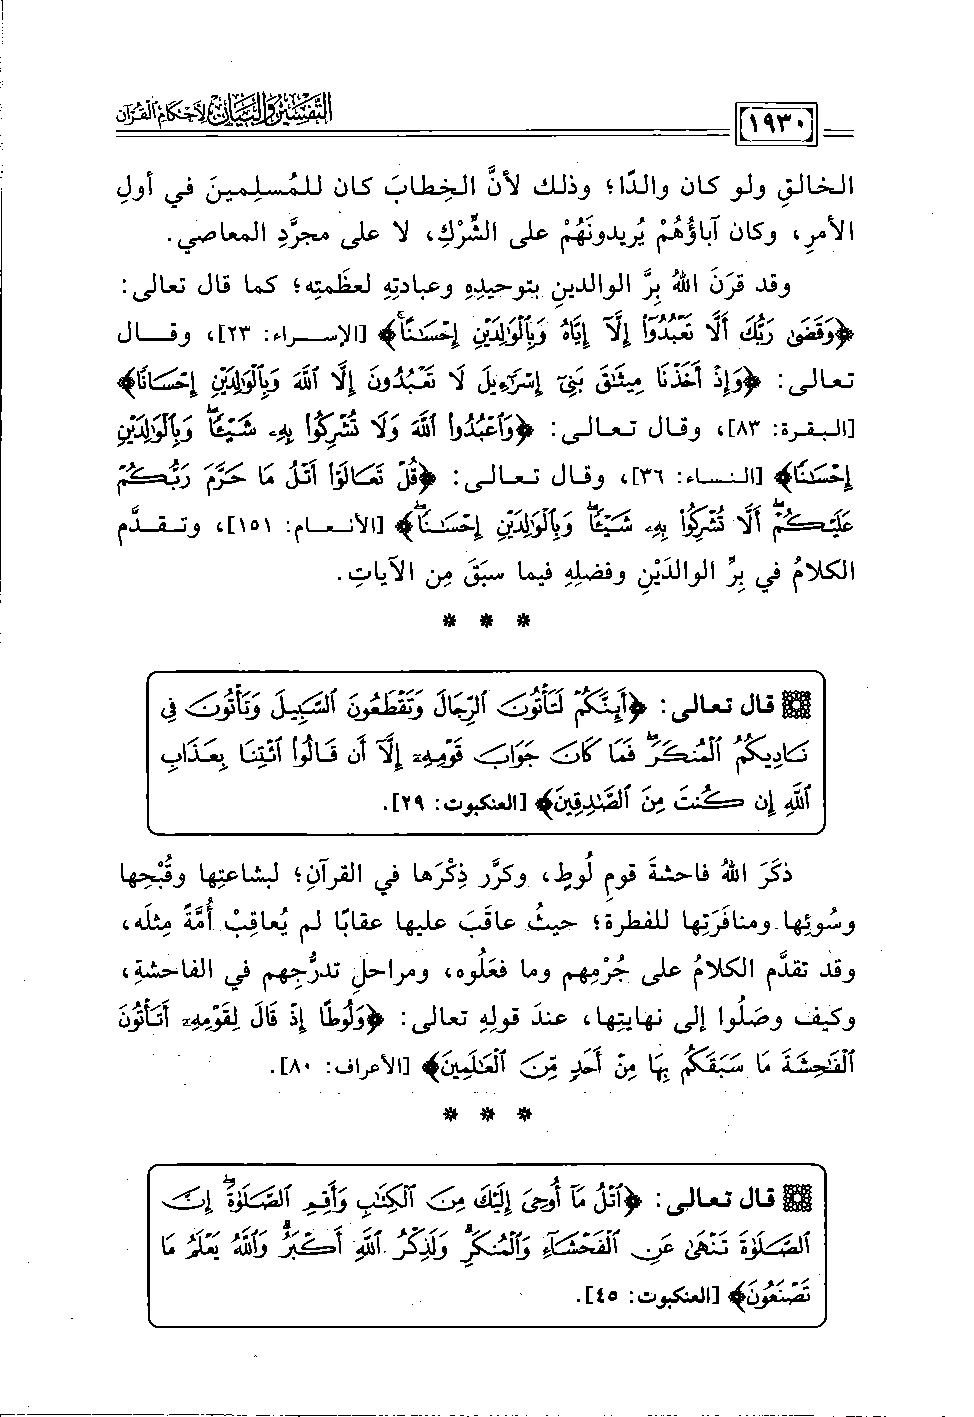 التفسير والبيان لأحكام القرآن
١٩٣٠
الخالقِ ولو كان والدًا؛ وذلك لأنَّ الخِطابَ كان للمُسلِمينَ في أولِ
الأمرِ، وكان آباؤُهُمْ يُريدونَهُمْ على الشِّرْكِ، لا على مجرَّدِ المعاصي.
وقد قرَنَ اللهُ بِرَّ الوالدينِ بتوحيدِهِ وعبادتِهِ لعظَمتِه؛ كما قال تعالى:
﴿وَقَضَىٰ رَبُّكَ أَلَّا تَعْبُدُوٓا۟ إِلَّآ إِيَّاهُ وَبِٱلْوَٰلِدَيْنِ إِحْسَٰنًا﴾ [الإسراء: ٢٣]، وقال
تعالى: ﴿وَإِذْ أَخَذْنَا مِيثَٰقَ بَنِىٓ إِسْرَٰٓءِيلَ لَا تَعْبُدُونَ إِلَّا ٱللَّهَ وَبِٱلْوَٰلِدَيْنِ إِحْسَانًا﴾
[البقرة: ٨٣]، وقال تعالى: ﴿وَٱعْبُدُوا۟ ٱللَّهَ وَلَا تُشْرِكُوا۟ بِهِۦ شَيْـًٔا ۖ وَبِٱلْوَٰلِدَيْنِ
إِحْسَٰنًا﴾ [النساء: ٣٦]، وقال تعالى: ﴿قُلْ تَعَالَوْا۟ أَتْلُ مَا حَرَّمَ رَبُّكُمْ
عَلَيْكُمْ ۖ أَلَّا تُشْرِكُوا۟ بِهِۦ شَيْـًٔا ۖ وَبِٱلْوَٰلِدَيْنِ إِحْسَٰنًا ۖ﴾ [الأنعام: ١٥١]، وتقدَّم
الكلامُ في بِرِّ الوالدَيْنِ وفضلِهِ فيما سبَقَ مِن الآياتِ.
* * *
قال تعالى: ﴿أَئِنَّكُمْ لَتَأْتُونَ ٱلرِّجَالَ وَتَقْطَعُونَ ٱلسَّبِيلَ وَتَأْتُونَ فِى
نَادِيكُمُ ٱلْمُنكَرَ ۖ فَمَا كَانَ جَوَابَ قَوْمِهِۦٓ إِلَّآ أَن قَالُوا۟ ٱئْتِنَا بِعَذَابِ
ٱللَّهِ إِن كُنتَ مِنَ ٱلصَّٰدِقِينَ﴾ [العنكبوت: ٢٩].
ذكَرَ اللهُ فاحشةَ قومِ لُوطٍ، وكرَّر ذِكْرَها في القرآنِ؛ لبشاعتِها وقُبْحِها
وسُوئِها ومنافَرَتِها للفطرة؛ حيثُ عاقَبَ عليها عقابًا لم يُعاقِبْ أُمَّةً مِثلَه،
وقد تقدَّم الكلامُ على جُرْمِهم وما فعَلُوه، ومراحلِ تدرُّجِهم في الفاحشةِ،
وكيف وصَلُوا إلى نهايتِها، عندَ قولِهِ تعالى: ﴿وَلُوطًا إِذْ قَالَ لِقَوْمِهِۦٓ أَتَأْتُونَ
ٱلْفَٰحِشَةَ مَا سَبَقَكُم بِهَا مِنْ أَحَدٍ مِّنَ ٱلْعَٰلَمِينَ﴾ [الأعراف: ٨٠].
* * *
قال تعالى: ﴿ٱتْلُ مَآ أُوحِىَ إِلَيْكَ مِنَ ٱلْكِتَٰبِ وَأَقِمِ ٱلصَّلَوٰةَ ۖ إِنَّ
ٱلصَّلَوٰةَ تَنْهَىٰ عَنِ ٱلْفَحْشَآءِ وَٱلْمُنكَرِ ۗ وَلَذِكْرُ ٱللَّهِ أَكْبَرُ ۗ وَٱللَّهُ يَعْلَمُ مَا
تَصْنَعُونَ﴾ [العنكبوت: ٤٥].